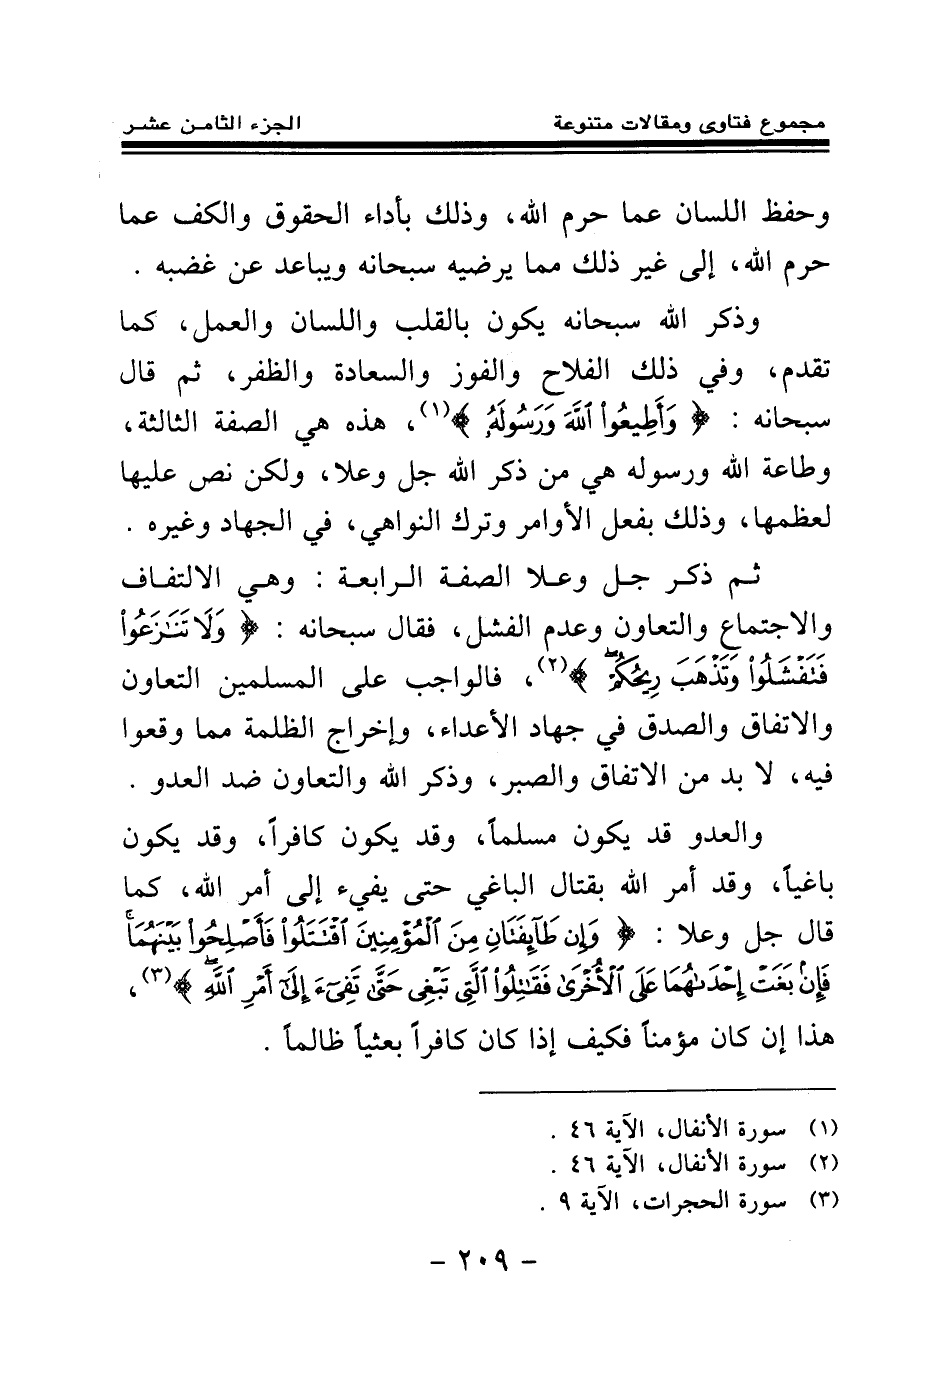 مجموع فتاوى ومقالات متنوعة الجزء الثامن عشر
وحفظ اللسان عما حرم الله، وذلك بأداء الحقوق والكف عما
حرم الله، إلى غير ذلك مما يرضيه سبحانه ويباعد عن غضبه .
وذكر الله سبحانه يكون بالقلب واللسان والعمل، كما
تقدم، وفي ذلك الفلاح والفوز والسعادة والظفر، ثم قال
سبحانه : ﴿ وَأَطِيعُوا۟ ٱللَّهَ وَرَسُولَهُۥ ﴾(١)، هذه هي الصفة الثالثة،
وطاعة الله ورسوله هي من ذكر الله جل وعلا، ولكن نص عليها
لعظمها، وذلك بفعل الأوامر وترك النواهي، في الجهاد وغيره .
ثم ذكر جل وعلا الصفة الرابعة : وهي الالتفاف
والاجتماع والتعاون وعدم الفشل، فقال سبحانه : ﴿ وَلَا تَنَٰزَعُوا۟
فَتَفْشَلُوا۟ وَتَذْهَبَ رِيحُكُمْ ۖ ﴾(٢)، فالواجب على المسلمين التعاون
والاتفاق والصدق في جهاد الأعداء، وإخراج الظلمة مما وقعوا
فيه، لا بد من الاتفاق والصبر، وذكر الله والتعاون ضد العدو .
والعدو قد يكون مسلماً، وقد يكون كافراً، وقد يكون
باغياً، وقد أمر الله بقتال الباغي حتى يفيء إلى أمر الله، كما
قال جل وعلا : ﴿ وَإِن طَآئِفَتَانِ مِنَ ٱلْمُؤْمِنِينَ ٱقْتَتَلُوا۟ فَأَصْلِحُوا۟ بَيْنَهُمَا ۖ
فَإِنۢ بَغَتْ إِحْدَىٰهُمَا عَلَى ٱلْأُخْرَىٰ فَقَٰتِلُوا۟ ٱلَّتِى تَبْغِى حَتَّىٰ تَفِىٓءَ إِلَىٰٓ أَمْرِ ٱللَّهِ ۚ ﴾(٣)،
هذا إن كان مؤمناً فكيف إذا كان كافراً بعثياً ظالماً .
(١) سورة الأنفال، الآية ٤٦ .
(٢) سورة الأنفال، الآية ٤٦ .
(٣) سورة الحجرات، الآية ٩ .
- ٢٠٩ -